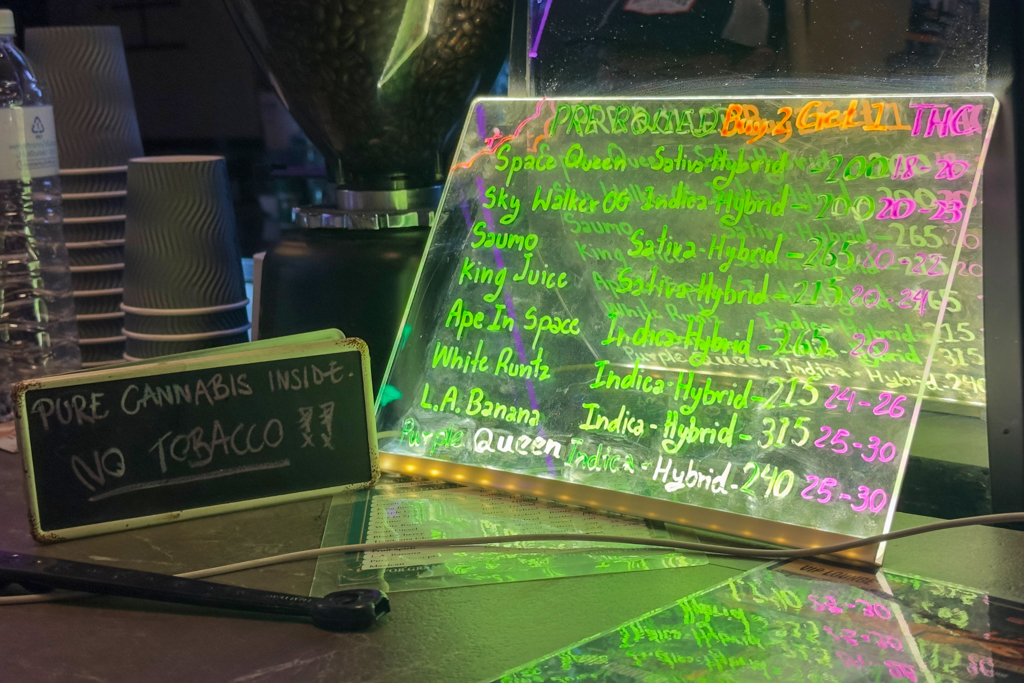 PREROLLED Buy 2 Get 1 THC
Space Queen Sativa-Hybrid - 200 18-20
Sky Walker OG Indica-Hybrid - 200 20-23
Saumo Sativa-Hybrid - 265 20-22
King Juice Sativa-Hybrid - 215 20-24
Ape In Space Indica-Hybrid - 265 20
White Runtz Indica-Hybrid - 215 24-26
L.A. Banana Indica-Hybrid - 315 25-30
Purple Queen Indica-Hybrid - 240 25-30
PURE CANNABIS INSIDE.
NO TOBACCO !!